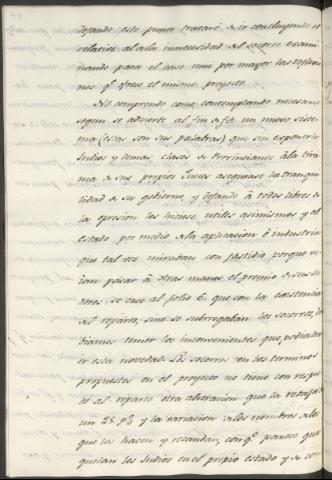 dejando este punto trataré de ir concluyendo el
relativo al de la innecesidad del socorro exami-
nando para el caso mui por mayor las reflexio-
nes q.e ofrece el mismo proyecto.
No comprendo como contemplando necesario
segun se advierte al fin de f.a un nuevo siste-
ma (estas son sus palabras) que sin exponer los
Indios y demas clases de Provincianos à la tira-
nia de sus propios Jueces asegurase la tranqui-
lidad de su gobierno, y dejando à todos libres de
la opresion los hiciese utiles asimismos y al
estado por medio de la aplicacion è industria
que tal vez miraban con fastidio porque ve-
ian pasar à otras manos el premio de sus su-
dores, se cree al folio 6 que con la extincion
del reparto, sino se subrogaban los socorros,
driamos temor los inconvenientes que podia tra-
er esta novedad. Los socorros en los terminos
propuestos en el proyecto no tiene con respe-
to al reparto otra alteracion que la rebaja de
un 25 p% y la variacion de los nombres de los
que los hacen y recaudan, con q.e parece que
quedan los Indios en el propio estado y se con-